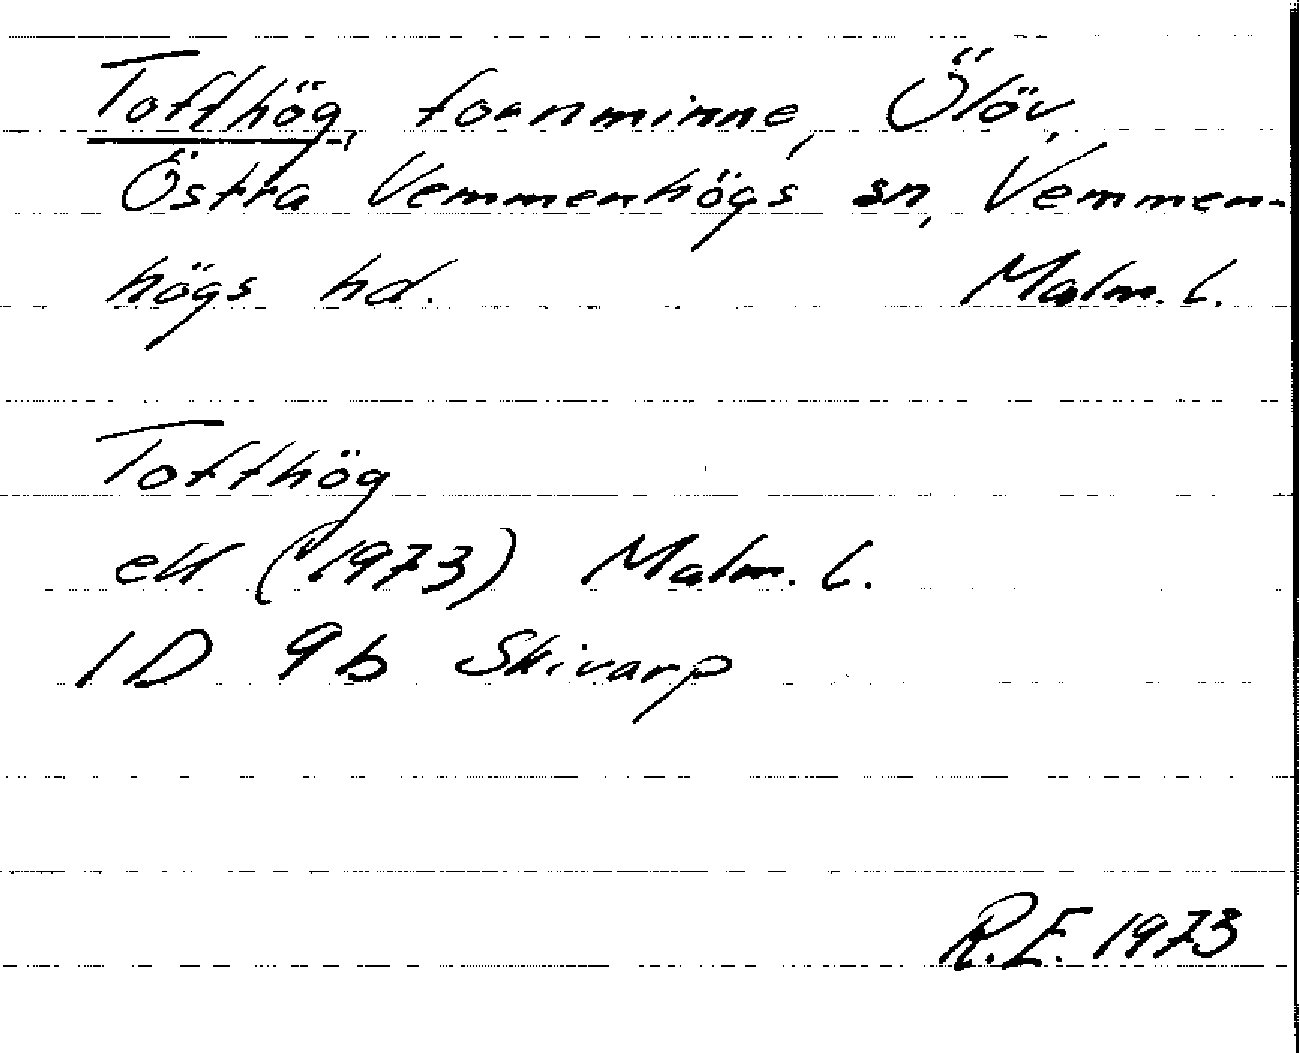 Tofthög, fornminne, Ölöv,
Östra Vemmenhögs sn, Vemmen-
högs hd. Malm. l.
Tofthög
ek (1973) Malm. l.
1D 9b Skivarp
R.E. 1973